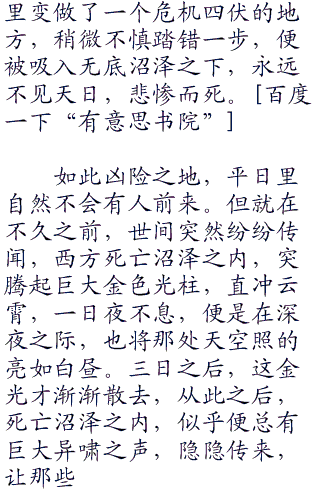 里变做了一个危机四伏的地
方，稍微不慎踏错一步，便
被吸入无底沼泽之下，永远
不见天日，悲惨而死。[百度
一下“有意思书院”]
如此凶险之地，平日里
自然不会有人前来。但就在
不久之前，世间突然纷纷传
闻，西方死亡沼泽之内，突
腾起巨大金色光柱，直冲云
霄，一日夜不息，便是在深
夜之际，也将那处天空照的
亮如白昼。三日之后，这金
光才渐渐散去，从此之后，
死亡沼泽之内，似乎便总有
巨大异啸之声，隐隐传来，
让那些